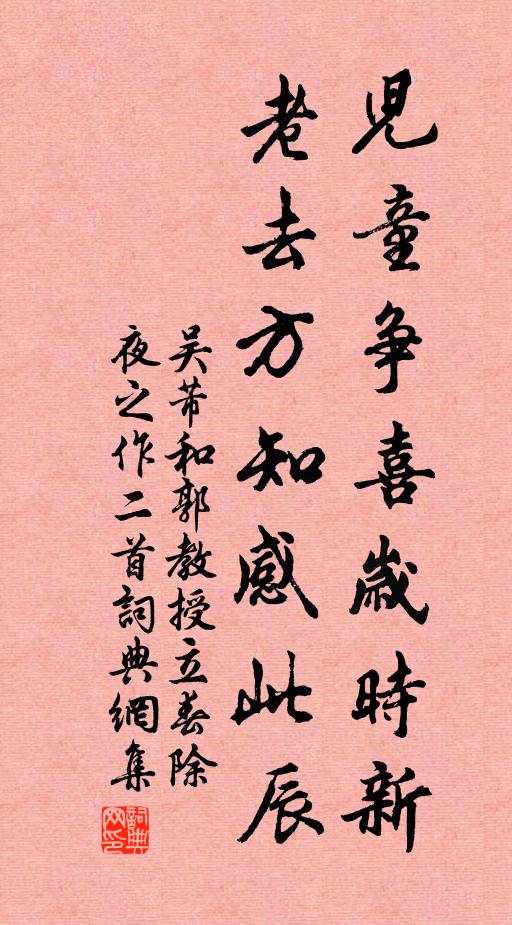 兒童争喜歲時新
老去方知感此辰
吴芾和郭教授立春除
夜之作二首詞典網集
詞典
网印